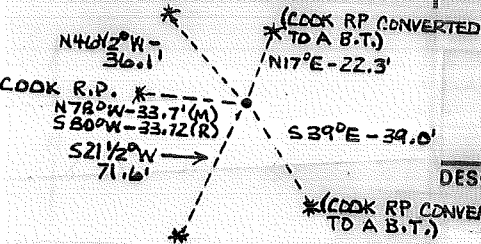 (COOK RP CONVERTED
TO A B.T.)
N46½°W-
36.1'
N17°E-22.3'
COOK R.P.
N78°W-33.7'(M)
S80°W-33.72(R)
S39°E-39.0'
S21½°W
71.6'
DES
(COOK RP CONVE
TO A B.T.)